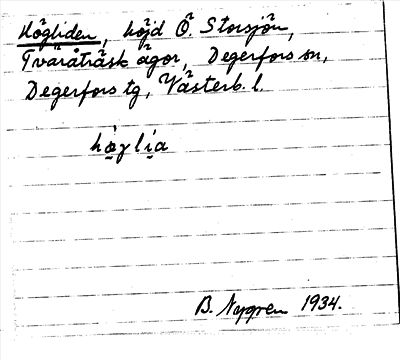 Högliden, höjd Ö. Storsjön,
Tväråträsk ägor, Degerfors sn,
Degerfors tg, Västerb. l.
hö̀γlìa
B. Nygren 1934.